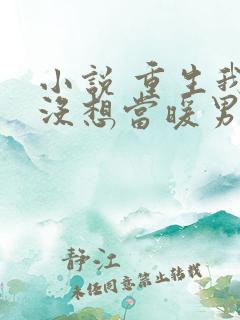 小説 重生我
沒想當暖男
静江
未经同意禁止转载